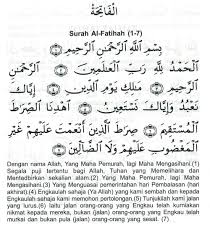 الْفَاتِحَةُ
Surah Al-Fatihah (1-7)
بِسْمِ اللَّهِ الرَّحْمَٰنِ الرَّحِيمِ ﴿١﴾
الْحَمْدُ لِلَّهِ رَبِّ الْعَالَمِينَ ﴿٢﴾ الرَّحْمَٰنِ
الرَّحِيمِ ﴿٣﴾ مَالِكِ يَوْمِ الدِّينِ ﴿٤﴾ إِيَّاكَ
نَعْبُدُ وَإِيَّاكَ نَسْتَعِينُ ﴿٥﴾ اهْدِنَا الصِّرَاطَ
الْمُسْتَقِيمَ ﴿٦﴾ صِرَاطَ الَّذِينَ أَنْعَمْتَ عَلَيْهِمْ غَيْرِ
الْمَغْضُوبِ عَلَيْهِمْ وَلَا الضَّالِّينَ ﴿٧﴾
Dengan nama Allah, Yang Maha Pemurah, lagi Maha Mengasihani.(1)
Segala puji tertentu bagi Allah, Tuhan yang Memelihara dan
Mentadbirkan sekalian alam.(2) Yang Maha Pemurah, lagi Maha
Mengasihani.(3) Yang Menguasai pemerintahan hari Pembalasan (hari
akhirat).(4) Engkaulah sahaja (Ya Allah) yang kami sembah dan kepada
Engkaulah sahaja kami memohon pertolongan.(5) Tunjukilah kami jalan
yang lurus.(6) Iaitu jalan orang-orang yang Engkau telah kurniakan
nikmat kepada mereka, bukan (jalan) orang-orang yang Engkau telah
murkai dan bukan pula (jalan) orang-orang yang sesat. (7)